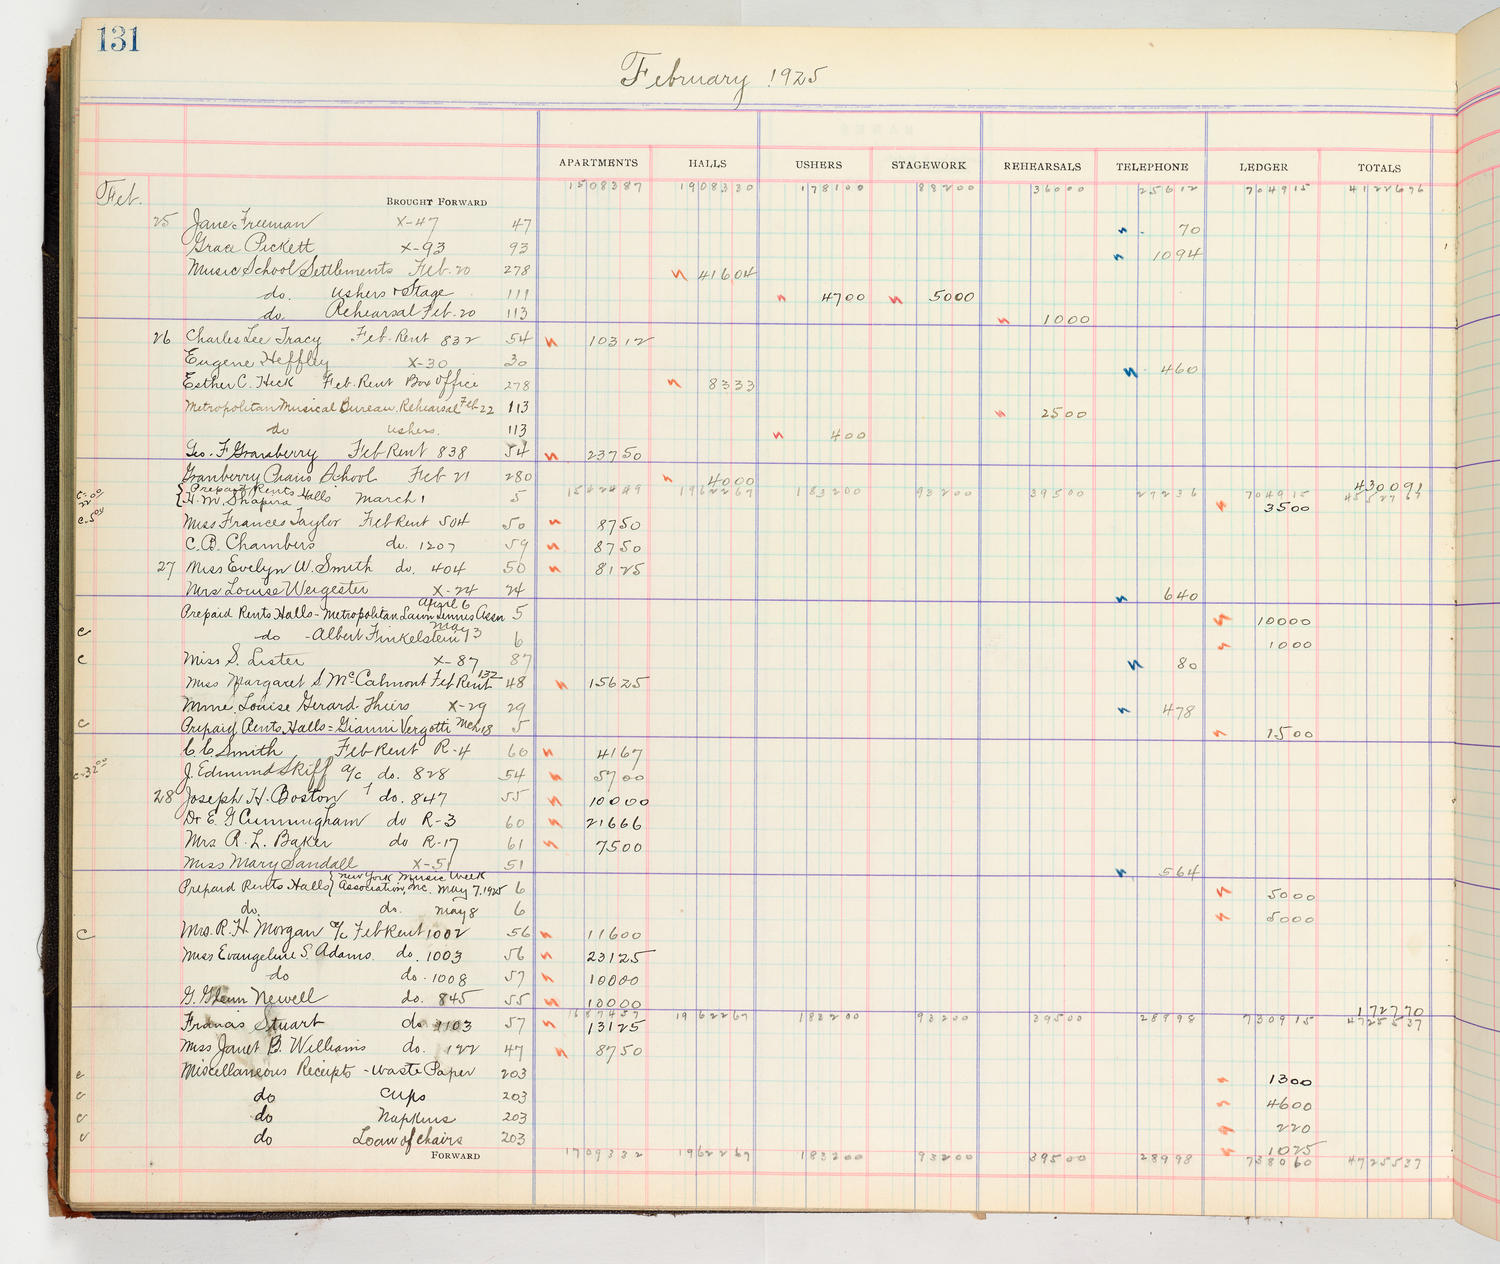 131
February 1925
APARTMENTS HALLS USHERS STAGEWORK REHEARSALS TELEPHONE LEDGER TOTALS
Feb. BROUGHT FORWARD 1508387 1908330 178100 88200 36000 25612 704915 4122676
25 Jane Freeman X-47 47 70
Grace Pickett X-93 93 1094
Music School Settlements Feb. 20 278 41604
do. Ushers + Stage 111 4700 5000
do. Rehearsal Feb. 20 113 1000
26 Charles Lee Tracy Feb. Rent 832 54 10312
Eugene Heffley X-30 30 460
Esther C. Heck Feb. Rent Box Office 278 8333
Metropolitan Musical Bureau. Rehearsal Feb 22 113 2500
do ushers. 113 400
Geo. F Granberry Feb Rent 838 54 23750
Granberry Piano School Feb 21 280 4000
430091
1962267 183200 93200 39500 27236 704915
{ Prepaid Rents Halls
H. M. Shapiro March 1 5 3500
Miss Frances Taylor Feb Rent 504 50 8750
C. B. Chambers do. 1207 59 8750
27 Miss Evelyn W. Smith do. 404 50 8125
Mrs Louise Weigester X-24 24 640
Prepaid Rents Halls - Metropolitan Lawn Tennis Assn April 6 5 10000
c do - Albert Finkelstein May 3 6 1000
c Miss S. Lister X-87 87 80
Miss Margaret S McCalmont Feb Rent 132 48 15625
Mme. Louise Gerard Thiers X-29 29 478
c Prepaid Rents Halls = Gianni Vergotti Mch 18 5 1500
C C Smith Feb Rent R-4 60 4167
c-32 00 J. Edmund Skiff a/c do. 828 54 5700
28 Joseph H. Boston do. 847 55 10000
Dr E. G Cunningham do R-3 60 21666
Mrs R. L. Baker do R-17 61 7500
Miss Mary Sandall X-51 51 564
Prepaid Rents Halls { New York Music Week Association, Inc. May 7, 1925 6 5000
do. do. May 8 6 5000
c Mrs. R. H. Morgan a/c Feb Rent 1002 56 11600
Miss Evangeline S. Adams do. 1003 56 23125
do do. 1008 57 10000
G. Glenn Newell do. 845 55 10000
172770
1687457 1962267 183200 93200 39500 28998 730915 4725537
Francis Stuart do 1103 57 13125
Miss Janet B. Williams do. 122 47 8750
c Miscellaneous Receipts - Waste Paper 203 1300
c do Cups 203 4600
c do Napkins 203 220
c do Loan of chairs 203 1025
FORWARD 1709332 1962267 183200 93200 39500 28998 738060 4725537